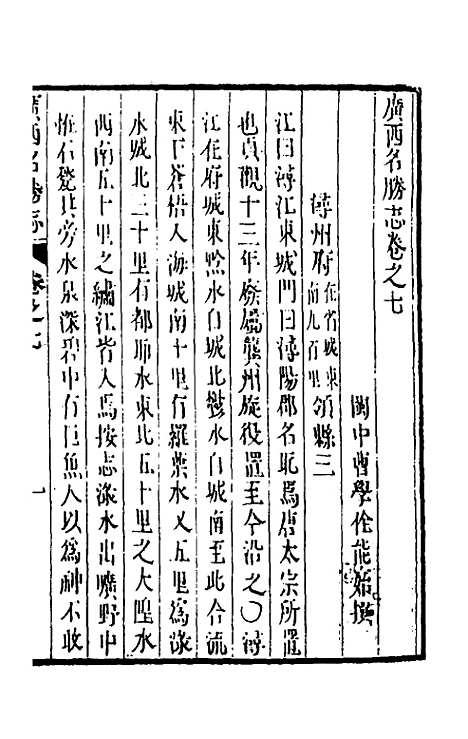 廣西名勝志卷之七
閩中曹學佺能始撰
潯州府在省城東南九百里領縣三
江曰潯江東城門曰潯陽郡名昉焉唐太宗所置
也貞觀十三年廢屬龔州旋復置至今沿之〇潯
江在府城東黔水自城北鬱水自城南至此合流
東下蒼梧入海城南十里有羅葉水又五里為淥
水城北三十里有都耶水東北五十里之大隍水
西南五十里之繡江皆入焉按志淥水出曠野中
惟石甃其旁水泉深碧中有巨魚人以為神不敢
廣西名勝志 卷之七 一